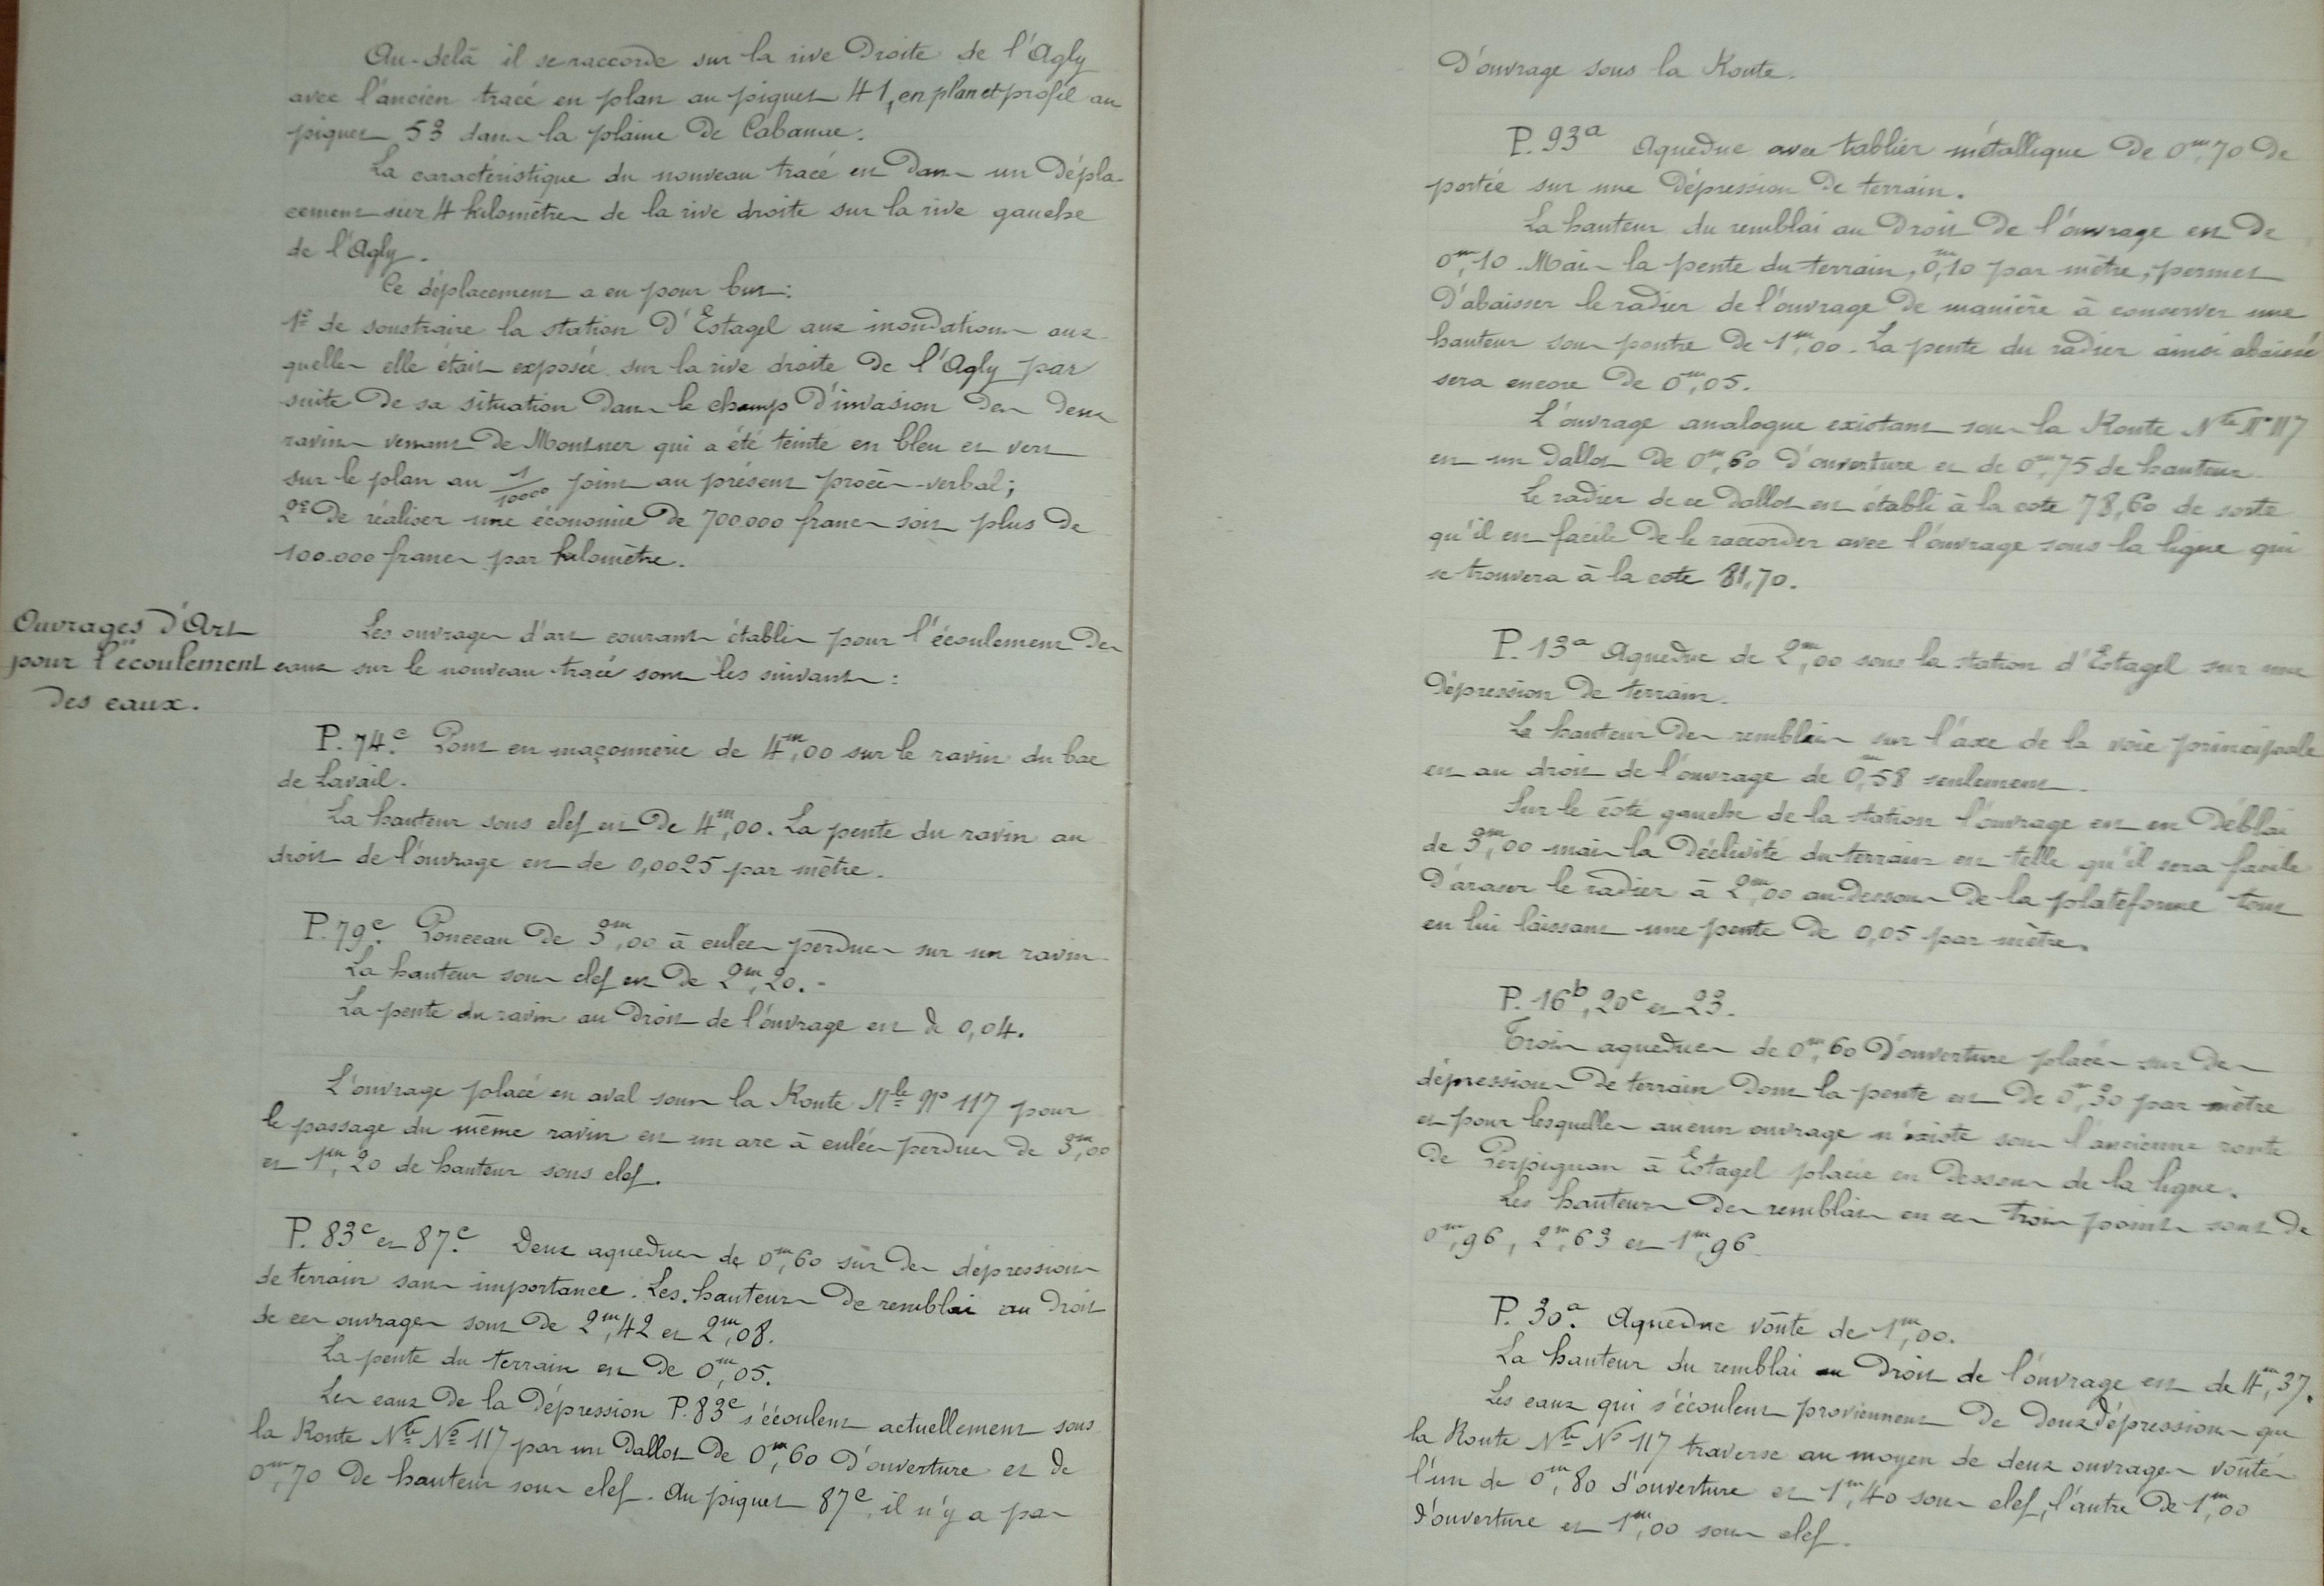 Au-delà il se raccorde sur la rive droite de l'Agly
avec l'ancien tracé en plan au piquet 41, en plan et profil au
piquet 53 dans la plaine de Cabanac.
La caractéristique du nouveau tracé est dans un dépla-
cement sur 4 kilomètres de la rive droite sur la rive gauche
de l'Agly.
Ce déplacement a eu pour but :
1º de soustraire la station d'Estagel aux inondations aux-
quelles elle était exposée sur la rive droite de l'Agly par
suite de sa situation dans le champ d'invasion des deux
ravins venant de Montner qui a été teinté en bleu et vert
sur le plan au 1/10000 joint au présent procès-verbal ;
2º De réaliser une économie de 700.000 francs soit plus de
100.000 francs par kilomètre.
Ouvrages d'Art
pour l'écoulement
des eaux.
Les ouvrages d'art courants établis pour l'écoulement des
eaux sur le nouveau tracé sont les suivants :
P. 74c. Pont en maçonnerie de 4m,00 sur le ravin du bac
de Lavail.
La hauteur sous clef est de 4m,00. La pente du ravin au
droit de l'ouvrage est de 0,0025 par mètre.
P. 79c. Ponceau de 3m,00 à culées perdues sur un ravin.
La hauteur sous clef est de 2m,20. -
La pente du ravin au droit de l'ouvrage est de 0,04.
L'ouvrage placé en aval sous la Route Nle Nº 117 pour
le passage du même ravin est un arc à culées perdues de 3m,00
et 1m,20 de hauteur sous clef.
P. 83c et 87c. Deux aqueducs de 0m,60 sur des dépressions
de terrain sans importance. Les hauteurs de remblai au droit
de ces ouvrages sont de 2m,42 et 2m,08.
La pente du terrain est de 0m,05.
Les eaux de la dépression P. 83c s'écoulent actuellement sous
la Route Nle Nº 117 par un dallot de 0m,60 d'ouverture et de
0m,70 de hauteur sous clef. Au piquet 87c, il n'y a pas
d'ouvrage sous la Route.
P. 93a Aqueduc avec tablier métallique de 0m,70 de
portée sur une dépression de terrain.
La hauteur du remblai au droit de l'ouvrage est de
0m,10. Mais la pente du terrain, 0m,10 par mètre, permet
d'abaisser le radier de l'ouvrage de manière à conserver une
hauteur sous poutre de 1m,00. La pente du radier ainsi abaissé
sera encore de 0m,05.
L'ouvrage analogue existant sous la Route Nle Nº 117
est un dallot de 0m,60 d'ouverture et de 0m,75 de hauteur.
Le radier de ce dallot est établi à la cote 78,60 de sorte
qu'il est facile de le raccorder avec l'ouvrage sous la ligne qui
se trouvera à la cote 81,70.
P. 13a Aqueduc de 2m,00 sous la station d'Estagel sur une
dépression de terrain.
La hauteur des remblais sur l'axe de la voie principale
est au droit de l'ouvrage de 0m,58 seulement.
Sur le côté gauche de la station l'ouvrage est en déblai
de 3m,00 mais la déclivité du terrain est telle qu'il sera facile
d'araser le radier à 2m,00 au-dessous de la plateforme tout
en lui laissant une pente de 0,05 par mètre.
P. 16b, 20c et 23.
Trois aqueducs de 0m,60 d'ouverture placés sur des
dépressions de terrain dont la pente est de 0m,30 par mètre
et pour lesquelles aucun ouvrage n'existe sous l'ancienne route
de Perpignan à Estagel placée en dessous de la ligne.
Les hauteurs des remblais en ces trois points sont de
0m,96, 2m,63 et 1m,96.
P. 30a. Aqueduc voûté de 1m,00.
La hauteur du remblai au droit de l'ouvrage est de 4m,37.
Les eaux qui s'écoulent proviennent de deux dépressions que
la Route Nle Nº 117 traverse au moyen de deux ouvrages voûtés
l'un de 0m,80 d'ouverture et 1m,40 sous clef, l'autre de 1m,00
d'ouverture et 1m,00 sous clef.